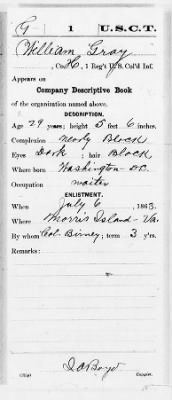 G | 1 | U.S.C.T.
William Gray
, Co. H, 1 Reg't U. S. Col'd Inf.
Appears on
Company Descriptive Book
of the organization named above.
DESCRIPTION.
Age 29 years; height 5 feet 6 inches.
Complexion Nearly Black
Eyes Dark; hair Black
Where born Washington - DC.
Occupation waiter
ENLISTMENT.
When July 6, 1863.
Where Morris Island - Va.
By whom Col. Birney; term 3 y'rs.
Remarks:
J A Boyd
Copyist.